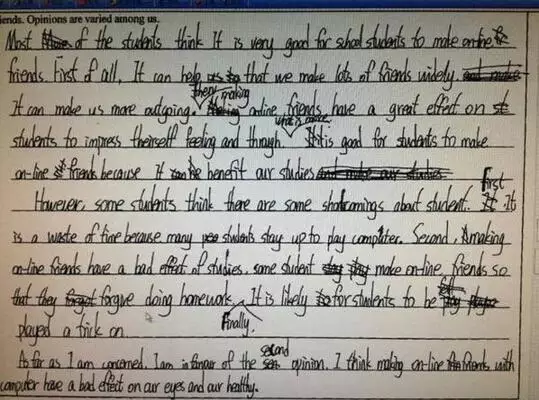 iends. Opinions are varied among us.
Most of the students think It is very good for school students to make on-line
friends. First of all, It can help that we make lots of friends widely.
It can make us more outgoing. then making on-line friends have a great effect on
students to impress theirself feeling and through. what is more It is good for students to make
on-line friends because It can be benefit our studies
However, some students think there are some shortcomings about student. First It
is a waste of time because many students stay up to play computer. Second, making
on-line friends have a bad effect of studies, some student make on-line friends so
that they forgive doing homework. Finally It is likely for students to be
played a trick on.
As far as I am concerned, I am in favour of the second opinion. I think making on-line friends with
computer have a bad effect on our eyes and our healthy.